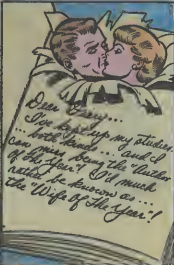 Dear Gary...
I've kept up my studies
...both kinds... and I
can nix being the "Author
of the Year"! I'd much
rather be known as...
the "Wife of the Year"!